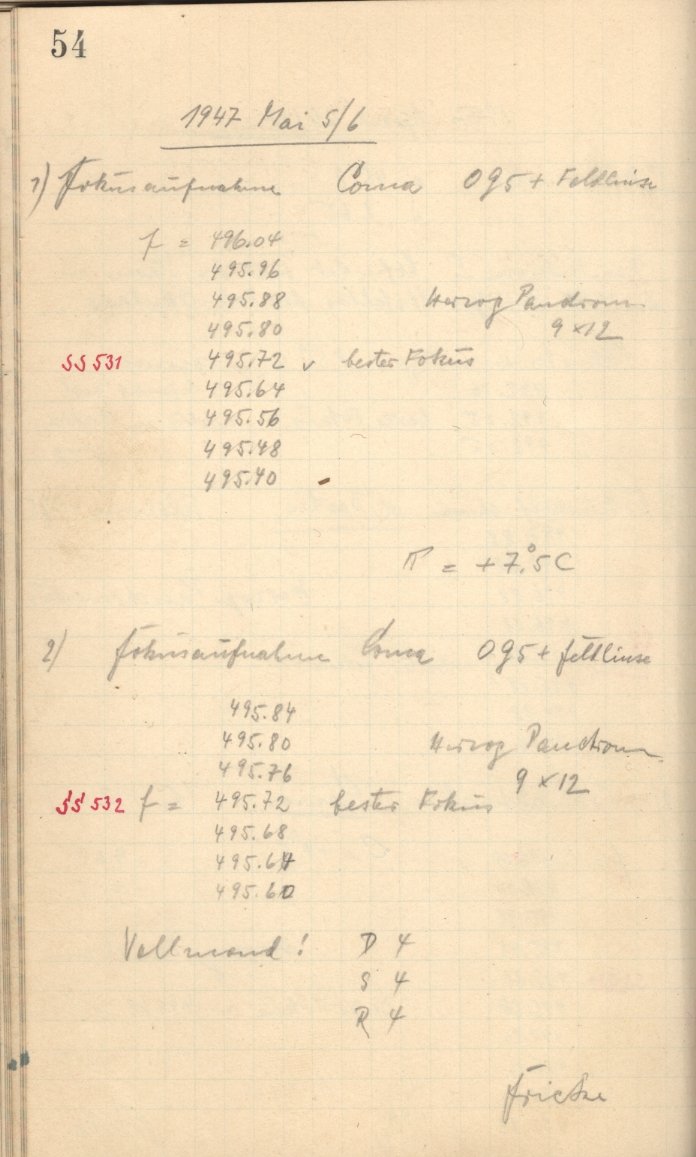 54
1947 Mai 5/6
1) Fokusaufnahme Coma OG5 + Feldlinse
f = 496.04
495.96
495.88 Herzog Panchrom
495.80 9 x 12
SS 531 495.72 v bester Fokus
495.64
495.56
495.48
495.40
T = +7.°5 C
2) Fokusaufnahme Coma OG5 + Feldlinse
495.84
495.80 Herzog Panchrom
495.76 9 x 12
SS 532 f = 495.72 bester Fokus
495.68
495.64
495.60
Vollmond! D 4
S 4
R 4
Fricke